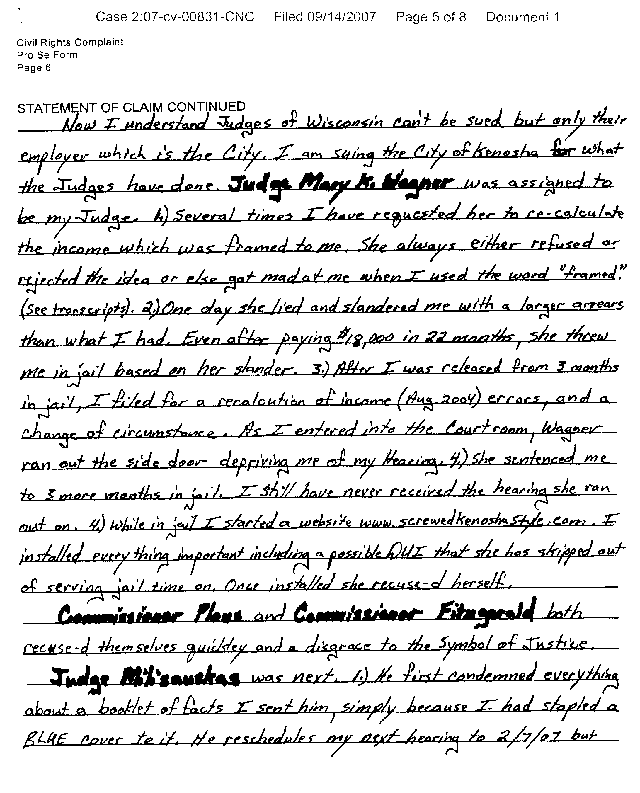 Case 2:07-cv-00831-CNC Filed 09/14/2007 Page 5 of 8 Document 1
Civil Rights Complaint
Pro Se Form
Page 6
STATEMENT OF CLAIM CONTINUED
Now I understand Judges of Wisconsin can't be sued but only their
employer which is the City. I am suing the City of Kenosha for what
the Judges have done. Judge Mary K. Wagner was assigned to
be my Judge. 1.) Several times I have requested her to re-calculate
the income which was framed to me. She always either refused or
rejected the idea or else got mad at me when I used the word "framed".
(See transcripts). 2.) One day she lied and slandered me with a larger arrears
than what I had. Even after paying $18,000 in 22 months, she threw
me in jail based on her slander. 3.) After I was released from 3 months
in jail, I filed for a recaloution of income (Aug. 2004) errors, and a
change of circumstance. As I entered into the Courtroom, Wagner
ran out the side door depriving me of my Hearing. 4.) She sentenced me
to 3 more months in jail. I still have never received the hearing she ran
out on. 4.) While in jail I started a website www.screwedkenoshastyle.com. I
installed every thing important including a possible DUI that she has skipped out
of serving jail time on. Once installed she recuse-d herself.
Commissioner Plous and Commissioner Fitzgerald both
recuse-d themselves quickley and a disgrace to the Symbol of Justice.
Judge Milisauskas was next. 1.) He first condemned everything
about a booklet of facts I sent him, simply because I had stapled a
BLUE cover to it. He reschedules my next hearing to 2/7/07 but